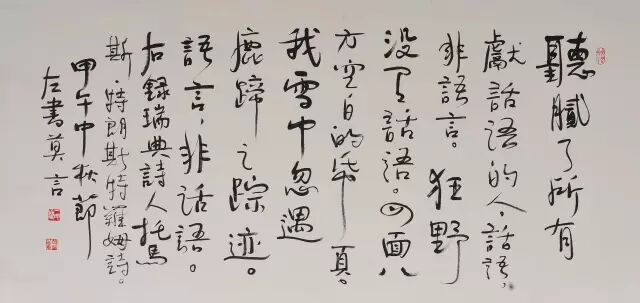 聽膩了所有
獻話語的人,話語,
非語言。狂野
没有話語。四面八
方空白的帋頁。
我雪中忽遇
鹿蹄之踪迹。
語言,非話語。
右録瑞典詩人托馬
斯·特朗斯特羅姆詩。
甲午中秋節
左書莫言